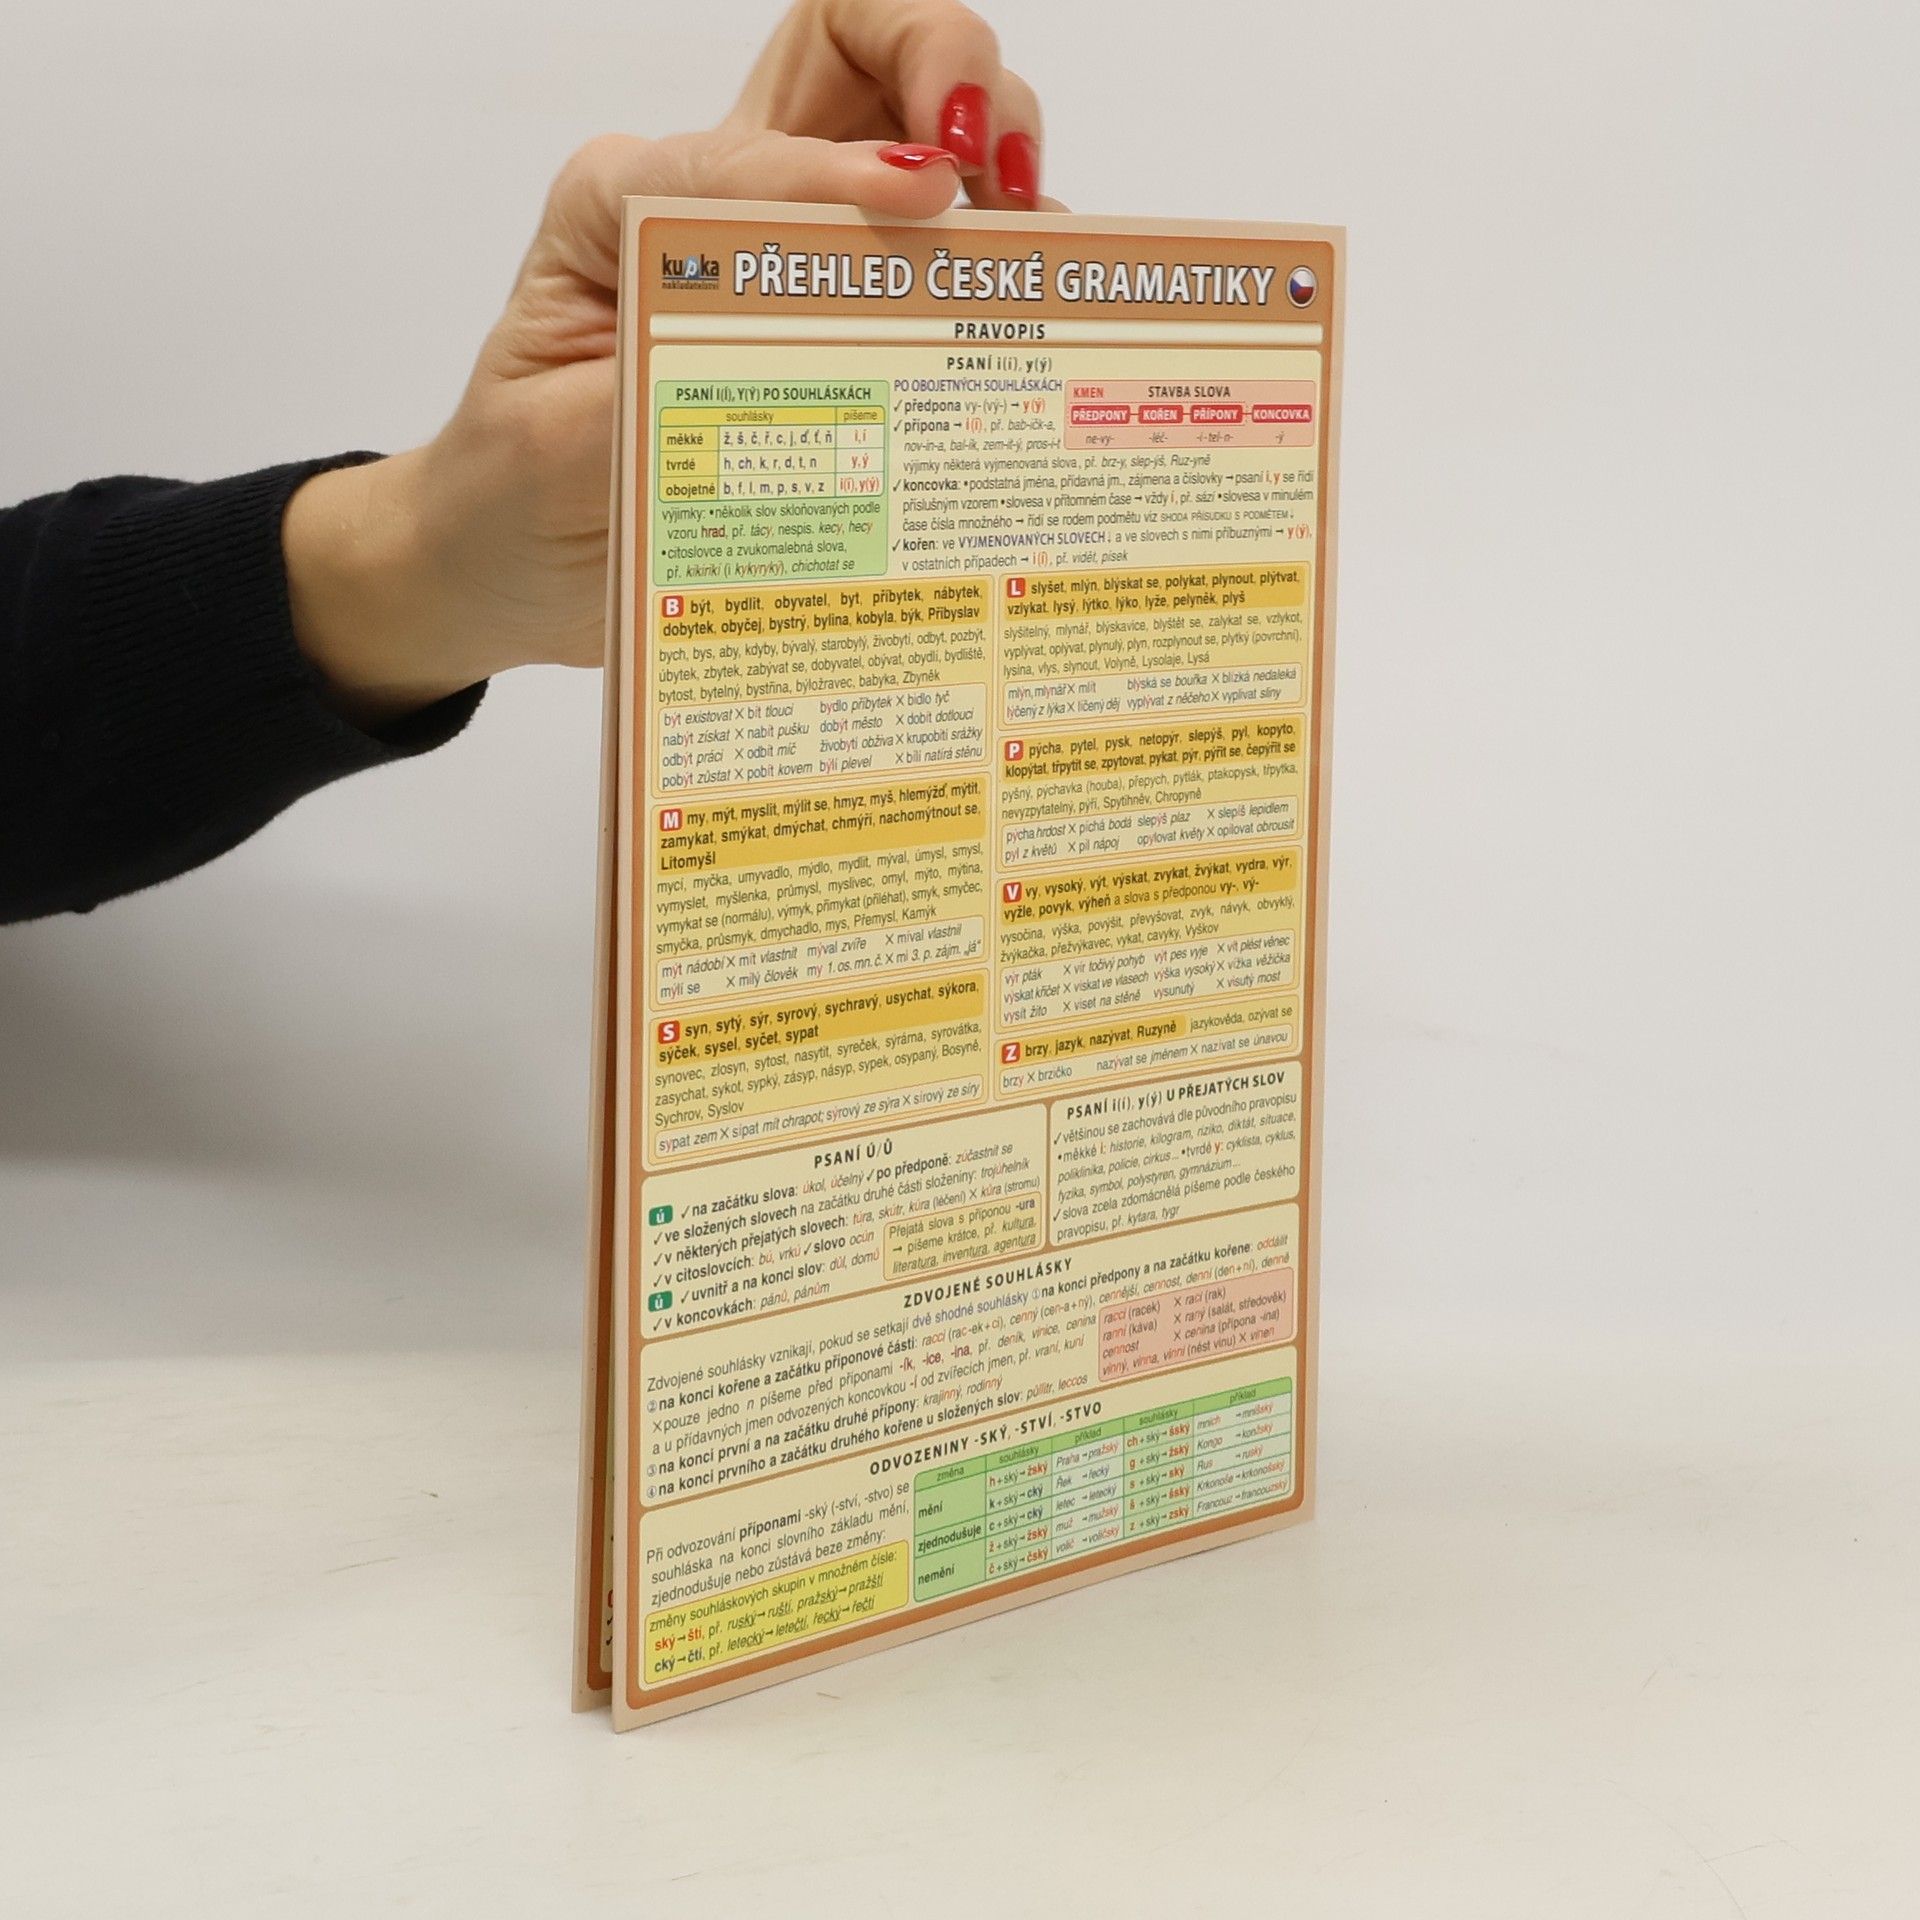 kupka
nakladatelství
PŘEHLED ČESKÉ GRAMATIKY
PRAVOPIS
PSANÍ i(í), y(ý)
PSANÍ I(Í), Y(Ý) PO SOUHLÁSKÁCH
souhlásky píšeme
měkké ž, š, č, ř, c, j, ď, ť, ň i, í
tvrdé h, ch, k, r, d, t, n y, ý
obojetné b, f, l, m, p, s, v, z i(í), y(ý)
výjimky: •několik slov skloňovaných podle
vzoru hrad, př. tácy, nespis. kecy, hecy
•citoslovce a zvukomalebná slova,
př. kikirikí (i kykyryký), chichotat se
PO OBOJETNÝCH SOUHLÁSKÁCH
✓předpona vy- (vý-) → y(ý)
✓přípona → i(í), př. bab-ičk-a,
nov-in-a, bal-ík, zem-it-ý, pros-i-t
výjimky některá vyjmenovaná slova, př. brz-y, slep-ýš, Ruz-yně
✓koncovka: •podstatná jména, přídavná jm., zájmena a číslovky → psaní i, y se řídí
příslušným vzorem •slovesa v přítomném čase → vždy í, př. sází •slovesa v minulém
čase čísla množného → řídí se rodem podmětu viz SHODA PŘÍSUDKU S PODMĚTEM↓
✓kořen: ve VYJMENOVANÝCH SLOVECH↓ a ve slovech s nimi příbuznými → y(ý),
v ostatních případech → i(í), př. vidět, písek
KMEN STAVBA SLOVA
PŘEDPONY KOŘEN PŘÍPONY KONCOVKA
ne-vy- -léč- -i-tel-n- -ý
B být, bydlit, obyvatel, byt, příbytek, nábytek,
dobytek, obyčej, bystrý, bylina, kobyla, býk, Přibyslav
bych, bys, aby, kdyby, bývalý, starobylý, živobytí, odbyt, pozbýt,
úbytek, zbytek, zabývat se, dobyvatel, obývat, obydlí, bydliště,
bytost, bytelný, bystřina, býložravec, babyka, Zbyněk
být existovat X bít tlouci bydlo příbytek X bidlo tyč
nabýt získat X nabít pušku dobýt město X dobít dotlouci
odbýt práci X odbít míč živobytí obživa X krupobití srážky
pobýt zůstat X pobít kovem býlí plevel X bílí natírá stěnu
M my, mýt, myslit, mýlit se, hmyz, myš, hlemýžď, mýtit,
zamykat, smýkat, dmýchat, chmýří, nachomýtnout se,
Litomyšl
mycí, myčka, umyvadlo, mýdlo, mydlit, mýval, úmysl, smysl,
vymyslet, myšlenka, průmysl, myslivec, omyl, mýto, mýtina,
vymykat se (normálu), výmyk, přimykat (přiléhat), smyk, smyčec,
smyčka, průsmyk, dmychadlo, mys, Přemysl, Kamýk
mýt nádobí X mít vlastnit mýval zvíře X míval vlastnil
mýlí se X milý člověk my 1. os. mn. č. X mi 3. p. zájm. „já“
S syn, sytý, sýr, syrový, sychravý, usychat, sýkora,
sýček, sysel, syčet, sypat
synovec, zlosyn, sytost, nasytit, syreček, sýrárna, syrovátka,
zasychat, sykot, sypký, zásyp, násyp, sypek, osypaný, Bosyně,
Sychrov, Syslov
sypat zem X sípat mít chrapot; sýrový ze sýra X sírový ze síry
L slyšet, mlýn, blýskat se, polykat, plynout, plýtvat,
vzlykat, lysý, lýtko, lýko, lyže, pelyněk, plyš
slyšitelný, mlynář, blýskavice, blyštět se, zalykat se, vzlykot,
vyplývat, oplývat, plynulý, plyn, rozplynout se, plytký (povrchní),
lysina, vlys, slynout, Volyně, Lysolaje, Lysá
mlýn, mlynář X mlít blýská se bouřka X blízká nedaleká
lýčený z lýka X líčený děj vyplývat z něčeho X vyplivat sliny
P pýcha, pytel, pysk, netopýr, slepýš, pyl, kopyto,
klopýtat, třpytit se, zpytovat, pykat, pýr, pýřit se, čepýřit se
pyšný, pýchavka (houba), přepych, pytlák, ptakopysk, třpytka,
nevyzpytatelný, pýří, Spytihněv, Chropyně
pýcha hrdost X píchá bodá slepýš plaz X slepíš lepidlem
pyl z květů X pil nápoj opylovat květy X opilovat obrousit
V vy, vysoký, výt, výskat, zvykat, žvýkat, vydra, výr,
vyžle, povyk, výheň a slova s předponou vy-, vý-
vysočina, výška, povýšit, převyšovat, zvyk, návyk, obvyklý,
žvýkačka, přežvýkavec, vykat, cavyky, Vyškov
výr pták X vír točivý pohyb výt pes vyje X vít plést věnec
výskat křičet X vískat ve vlasech výška vysoký X vížka věžička
vysít žito X viset na stěně vysunutý X visutý most
Z brzy, jazyk, nazývat, Ruzyně jazykověda, ozývat se
brzy X brzičko nazývat se jménem X nazívat se únavou
PSANÍ Ú/Ů
ú ✓na začátku slova: úkol, účelný ✓po předponě: zúčastnit se
✓ve složených slovech na začátku druhé části složeniny: trojúhelník
✓v některých přejatých slovech: túra, skútr, kúra (léčení) X kůra (stromu)
✓v citoslovcích: bú, vrkú ✓slovo ocún
ů ✓uvnitř a na konci slov: důl, domů
✓v koncovkách: pánů, pánům
Přejatá slova s příponou -ura
→ píšeme krátce, př. kultura,
literatura, inventura, agentura
PSANÍ i(í), y(ý) U PŘEJATÝCH SLOV
✓většinou se zachovává dle původního pravopisu
•měkké i: historie, kilogram, riziko, diktát, situace,
poliklinika, policie, cirkus... •tvrdé y: cyklista, cyklus,
fyzika, symbol, polystyren, gymnázium...
✓slova zcela zdomácnělá píšeme podle českého
pravopisu, př. kytara, tygr
ZDVOJENÉ SOUHLÁSKY
Zdvojené souhlásky vznikají, pokud se setkají dvě shodné souhlásky ①na konci předpony a na začátku kořene: oddálit
②na konci kořene a začátku příponové části: racci (rac-ek+ci), cenný (cen-a+ný), cennější, cennost, denní (den+ní), denně
X pouze jedno n píšeme před příponami -ík, -ice, -ina, př. deník, vinice, cenina
a u přídavných jmen odvozených koncovkou -í od zvířecích jmen, př. vraní, kuní
③na konci první a na začátku druhé přípony: krajinný, rodinný
④na konci prvního a začátku druhého kořene u složených slov: půllitr, leccos
racci (racek) X raci (rak)
ranní (káva) X raný (salát, středověk)
cennost X cenina (přípona -ina)
vinný, vinna, vinni (nést vinu) X vinen
ODVOZENINY -SKÝ, -STVÍ, -STVO
Při odvozování příponami -ský (-ství, -stvo) se
souhláska na konci slovního základu mění,
zjednodušuje nebo zůstává beze změny:
změny souhláskových skupin v množném čísle:
ský→ští, př. ruský→ruští, pražský→pražští
cký→čtí, př. letecký→letečtí, řecký→řečtí
změna souhlásky příklad souhlásky příklad
mění h+ský→žský Praha→pražský ch+ský→šský mnich→mnišský
k+ský→cký Řek→řecký g+ský→žský Kongo→konžský
zjednodušuje c+ský→cký letec→letecký s+ský→ský Rus→ruský
nemění ž+ský→žský muž→mužský š+ský→šský Krkonoše→krkonošský
č+ský→čský volič→voličský z+ský→zský Francouz→francouzský